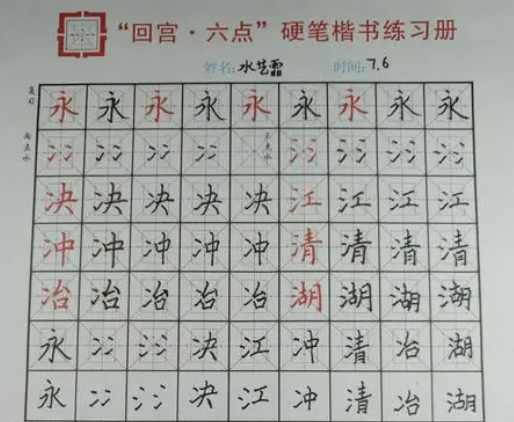 “回宫·六点”硬笔楷书练习册
姓名:水艺霜 时间:7.6
复习 永 永 永 永 永 永 永 永 永
两点水 冫 冫 冫 冫 三点水 氵 氵 氵 氵
决 决 决 决 决 江 江 江 江
冲 冲 冲 冲 冲 清 清 清 清
冶 冶 冶 冶 冶 湖 湖 湖 湖
永 冫 氵 决 江 冲 清 冶 湖
永 冫 氵 决 江 冲 清 冶 湖